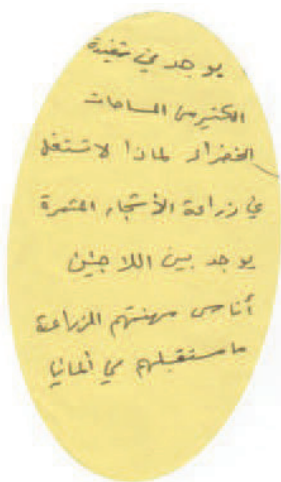 يوجد في
الكثير من المساحات
الخضراء لماذا لا تستغل
في زراعة الأشجار المثمرة
يوجد بين اللاجئين
أناس مهنتهم الزراعة
ما مستقبلهم في ألمانيا